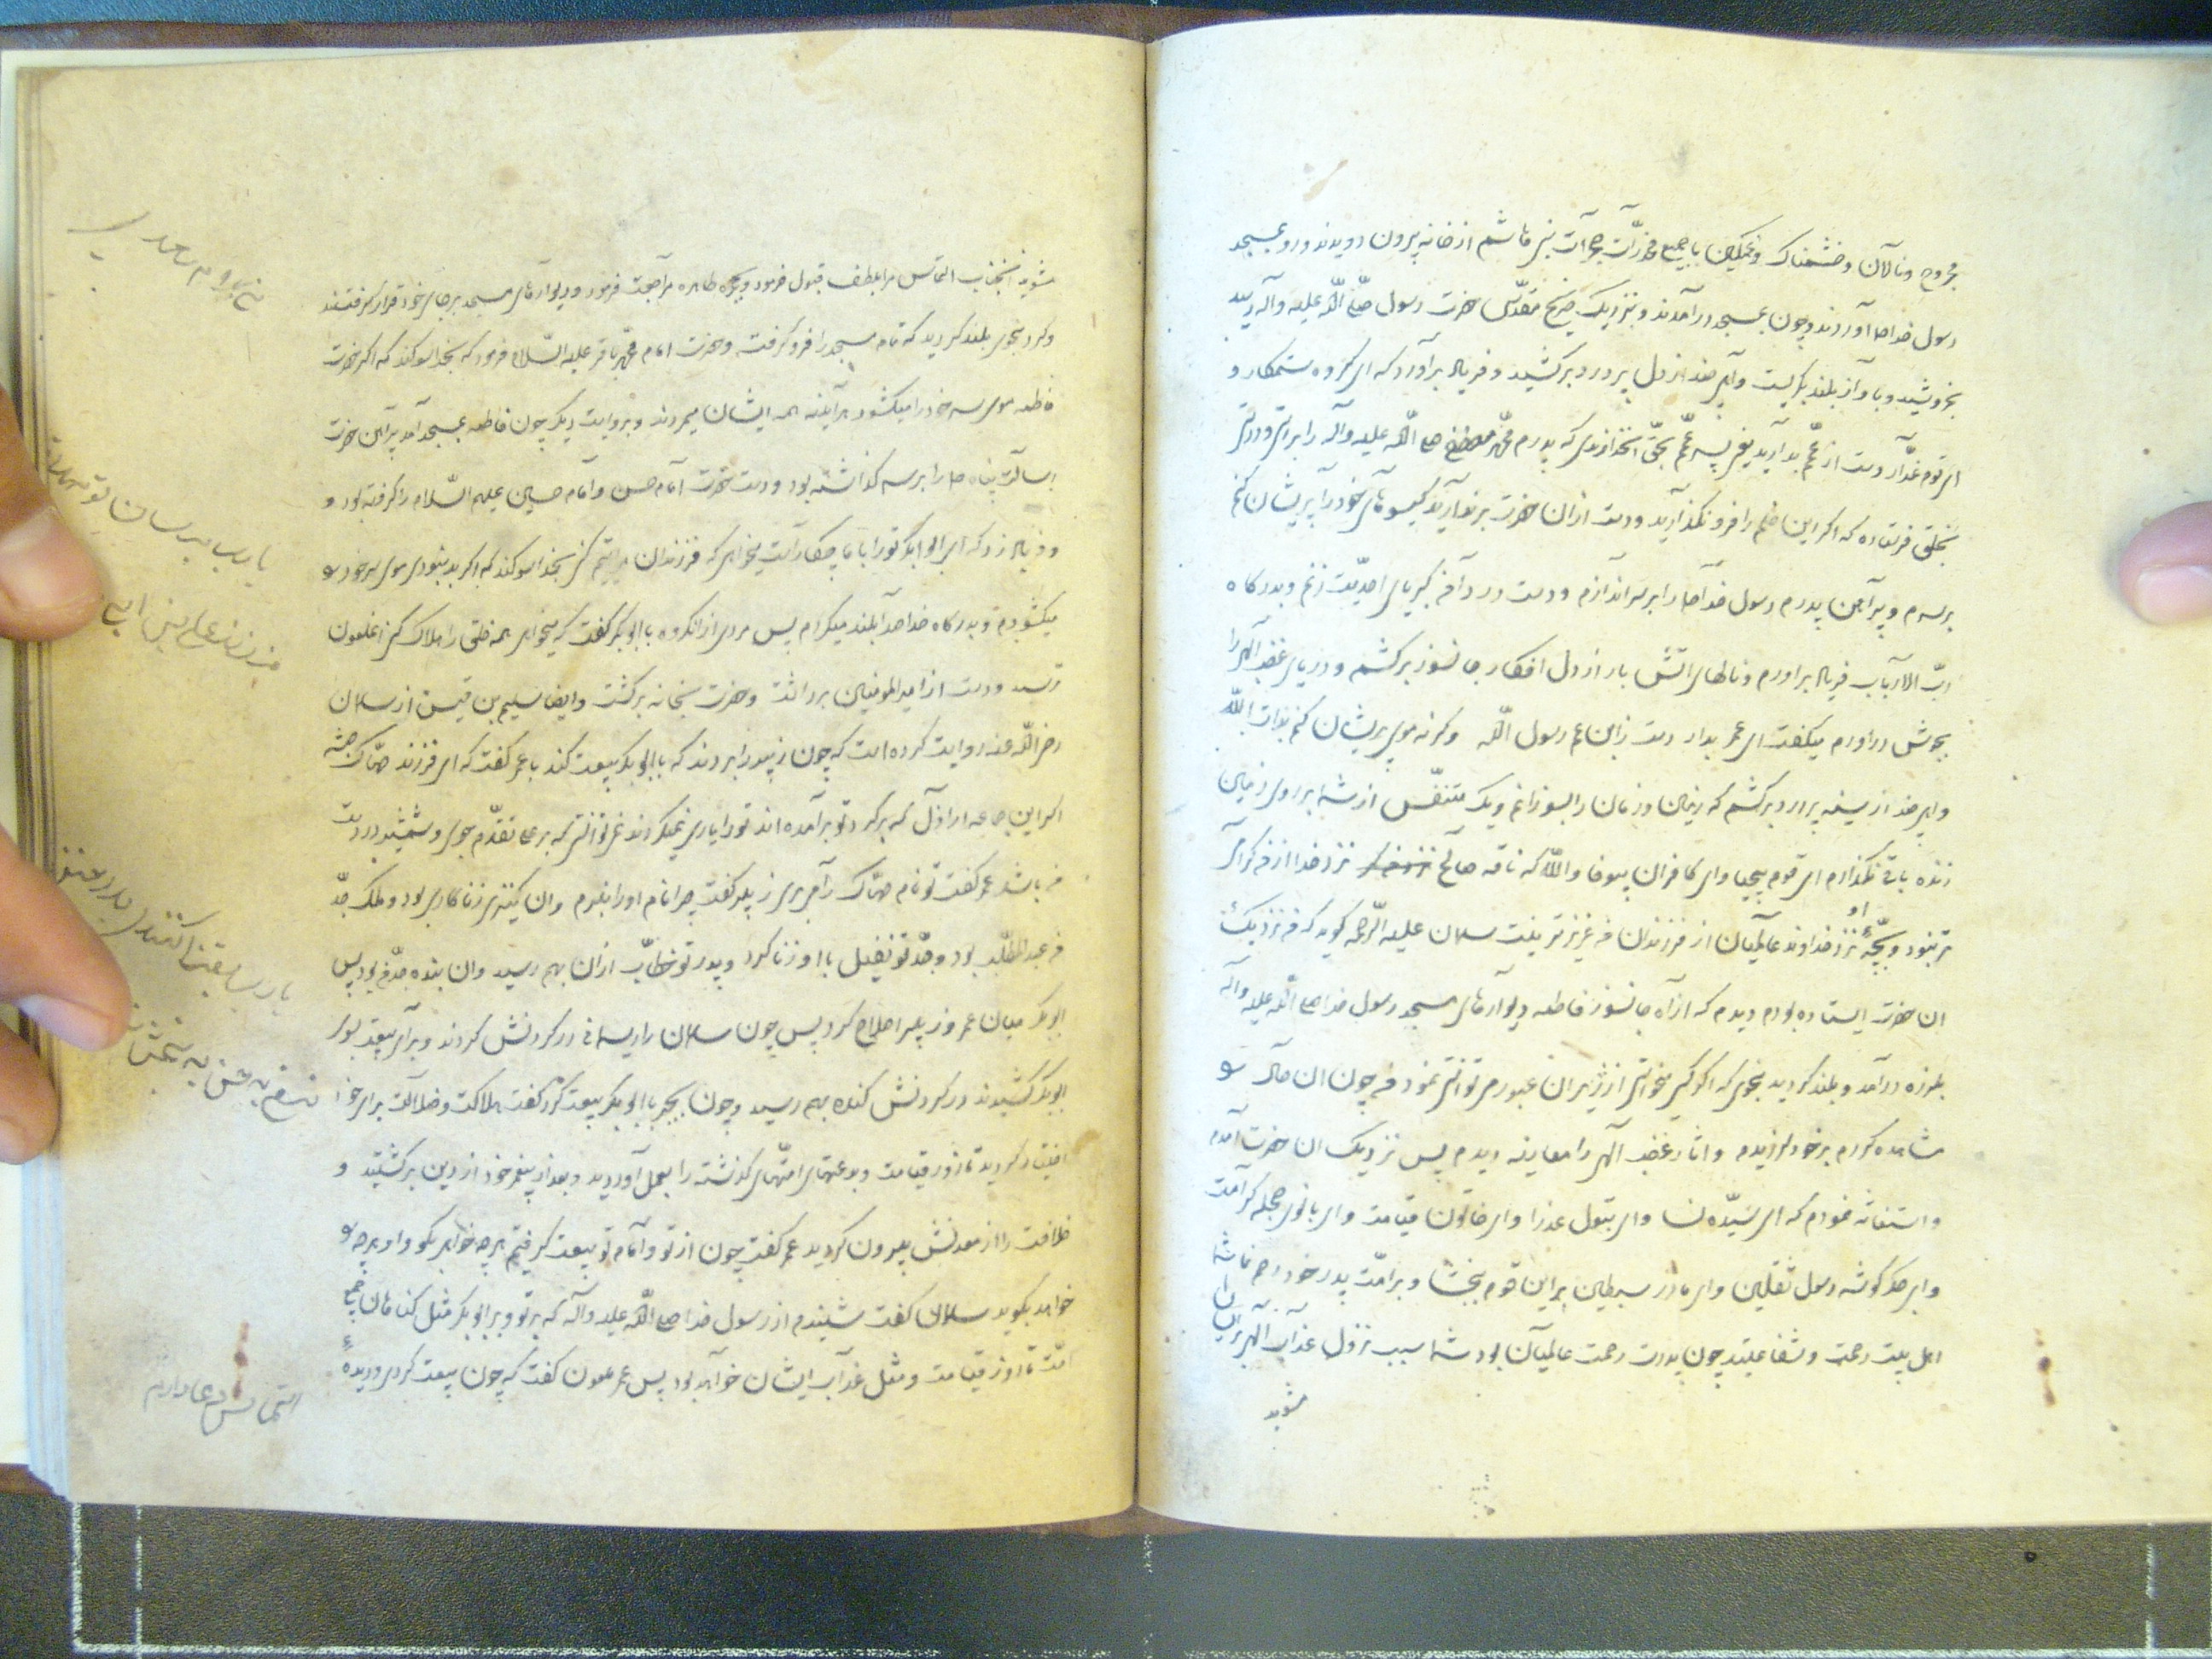 مجروح و نالان و خشمناک و غمگین با جمیع مخدرات حجرات بنی هاشم از خانه بیرون دویدند و رو بمسجد
رسول خدا ص آوردند و چون بمسجد درآمدند و بنزدیک ضریح مقدّس حضرت رسول صلّی اللّه علیه وآله رسید
بخروشید و باواز بلند بگریست و آهی چند از دل پر درد برکشید و فریاد برآورد که ای گروه ستمکار و
ای قوم غدّار دست از عمّم بدارید یعنی پسر عمّم بحقّ آنخداوندی که پدرم محمّد مصطفی ص اللّه علیه وآله را براستی و درستی
بخلق فرستاده که اگر این ظلم را فرو نگذارید و دست از ان حضرت برندارید گیسوهای خود را پریشان کنم
برسرم و پیراهن پدرم رسول خدا ص را برسر اندازم و دست در دامن کبریای احدیّت زنم و بدرگاه
ربّ الارباب فریاد براورم و نالهای اتش بار از دل افکار جانسوز برکشم و دریای غضب الهی را
بجوش دراورم میگفت ای عمر بدار دست زابن عم رسول اللّه وگرنه موی پریشان کنم بذات اللّه
و اهی چند از سینه پردرد برکشم که زمین و زمان را بسوزانم و یک متنفّس از شما بر روی زمین
زنده باقی نگذارم ای قوم بیحیا و ای کافران بیوفا واللّه که ناقه صالح نزد خدا از من گرامی
تر نبود و بچّهٔ او نزد خداوند عالمیان از فرزندان من عزیزتر نیست سلمان علیه الرّحمه گوید که من نزدیک
ان حضرت ایستاده بودم دیدم که از آه جانسوز فاطمه دیوارهای مسجد رسول خدا ص اللّه علیه وآله
بلرزه درآمد و بلند گردید بنحوی که اگر کسی میخواستی از زیر ان عبور می توانستی نمود من چون ان حال را
مشاهده کردم بر خود لرزیدم و اثار غضب الهی را معاینه دیدم پس نزدیک ان حضرت آمدم
و استغاثه نمودم که ای سیّده نسا و ای بتول عذرا و ای خاتون قیامت و ای بانوی حجله کرامت
و ای جگرگوشه رسول ثقلین و ای مادر سبطین براین قوم ببخشا و بر امّت پدر خود رحم نما شما
اهل بیت رحمت و شفاعتید چون پدرت رحمت عالمیان بود شما سبب نزول عذاب الهی بر ایشان
مشوید
مشوید آنجناب التماس مرا بلطف قبول فرمود و بحجره طاهره مراجعت فرمود و دیوارهای مسجد برجای خود قرار گرفتند
و گرد بنحوی بلند گردید که تمام مسجد را فرو گرفت و حضرت امام محمّد باقر علیه السّلام فرمود که بخدا سوگند که اگر حضرت
فاطمه موی سر خود را میگشود هرآینه همه ایشان میمردند و بروایت دیگر چون فاطمه بمسجد آمد پیراهن حضرت
رسالت پناه ص را برسر گذاشته بود و دست حضرت امام حسن و امام حسین علیهم السّلام را گرفته بود و
و فریاد زد که ای ابو ابکر تو را با ما چکار است میخواهی که فرزندان مرا یتیم کنی بخدا سوگند که اگر بد نبودی موی سر خود را
میگشودم و بدرگاه خدا صدا بلند میکردم پس مردی از انگروه با ابوبکر گفت که میخواهی همه خلق را هلاک کنی انملعون
ترسید و دست از امیرالمومنین برداشت و حضرت بخانه برگشت و ایضا سلیم بن قیس از سلمان
رضی اللّه عنه روایت کرده است که چون زبیر را بردند که با ابوبکر بیعت کند با عمر گفت که ای فرزند صهّاک حبشیه
اگر این جماعه اراذل که برگرد تو برآمده اند تو را یاری نمیکردند نمی توانستی که بر ما تقدّم جوی و شمشیر در دست
من باشد عمر گفت تو نام صهّاک را می بری زبیر گفت چرا نام او را نبرم و ان کنیزی زناکاری بود و ملک جدّ
من عبدالمطّلب بود و جدّ تو نفیل با او زنا کرد و پدر تو خطّاب از ان بهم رسید و ان بنده جدّ من بود پس
ابوبکر میان عمر و زبیر اصلاح کرد پس چون سلمان را ریسمانی در گردنش کردند و برای بیعت بسوی
ابوبکر کشیدند در گردنش کنده بهم رسید و چون بجبر با ابوبکر بیعت کرد گفت هلاکت و ضلالت برای خود
اختیار کردید تا روز قیامت و بدعتهای امّتهای گذشته را بعمل آوردید و بعد از پیغمبر خود از دین برگشتید و
خلافت را از معدنش بیرون کردید عمر گفت چون از تو و امام تو بیعت گرفتیم هرچه خواهی بگو و او هرچه
خواهد بگوید سلمان گفت شنیدم از رسول خدا ص اللّه علیه وآله که بر تو و بر ابوبکر مثل گناهان جمیع
امّت تا روز قیامت و مثل عذاب ایشان خواهد بود پس عمر ملعون گفت که چون بیعت کردی و دیدهٔ
یا رب برسان تو
التماس دعا دارم